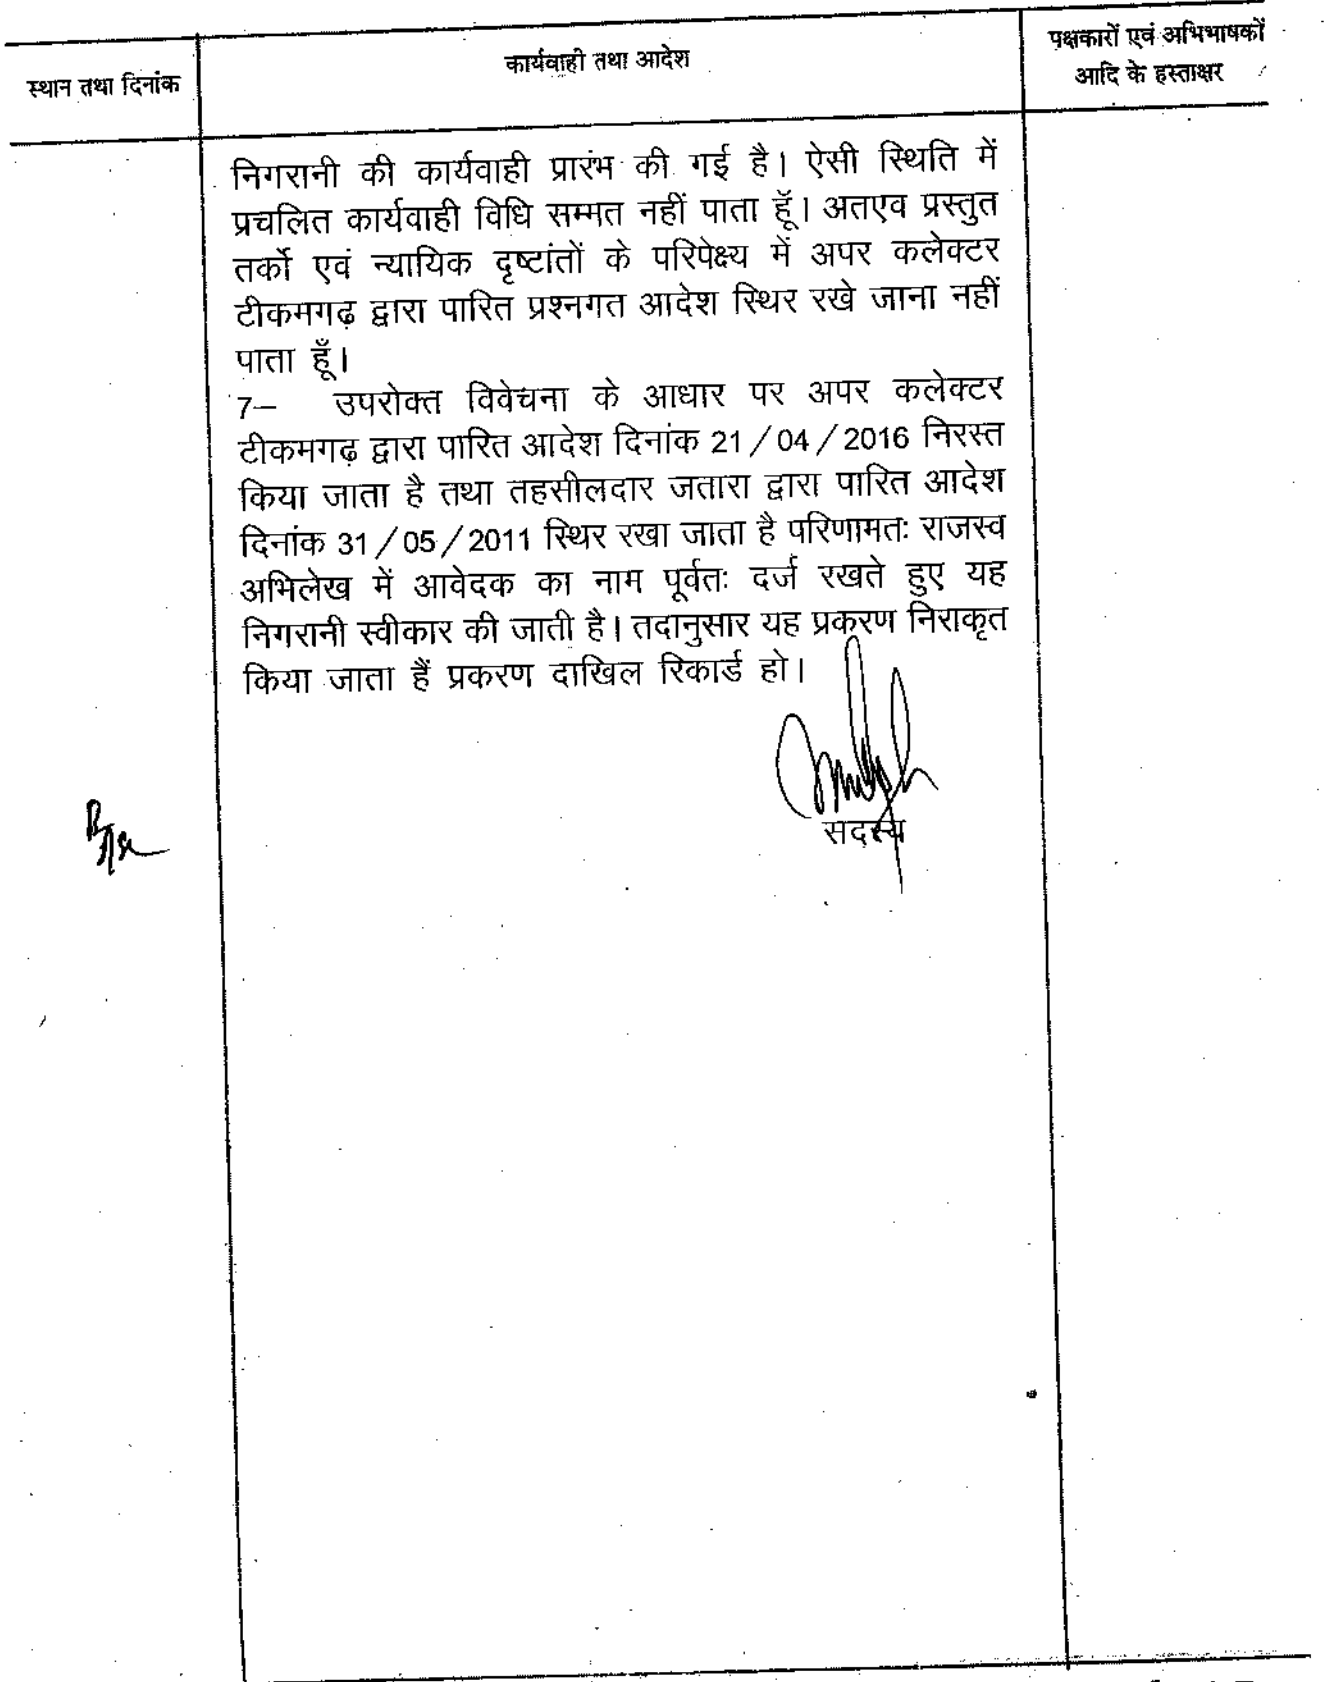 स्थान तथा दिनांक
कार्यवाही तथा आदेश
पक्षकारों एवं अभिभाषकों
आदि के हस्ताक्षर
निगरानी की कार्यवाही प्रारंभ की गई है। ऐसी स्थिति में
प्रचलित कार्यवाही विधि सम्मत नहीं पाता हूॅ। अतएव प्रस्तुत
तर्को एवं न्यायिक दृष्टांतों के परिपेक्ष्य में अपर कलेक्टर
टीकमगढ़ द्वारा पारित प्रश्नगत आदेश स्थिर रखे जाना नहीं
पाता हूँ।
7– उपरोक्त विवेचना के आधार पर अपर कलेक्टर
टीकमगढ़ द्वारा पारित आदेश दिनांक 21/04/2016 निरस्त
किया जाता है तथा तहसीलदार जतारा द्वारा पारित आदेश
दिनांक 31/05/2011 स्थिर रखा जाता है परिणामतः राजस्व
अभिलेख में आवेदक का नाम पूर्वतः दर्ज रखते हुए यह
निगरानी स्वीकार की जाती है। तदानुसार यह प्रकरण निराकृत
किया जाता हैं प्रकरण दाखिल रिकार्ड हो।
सदस्य